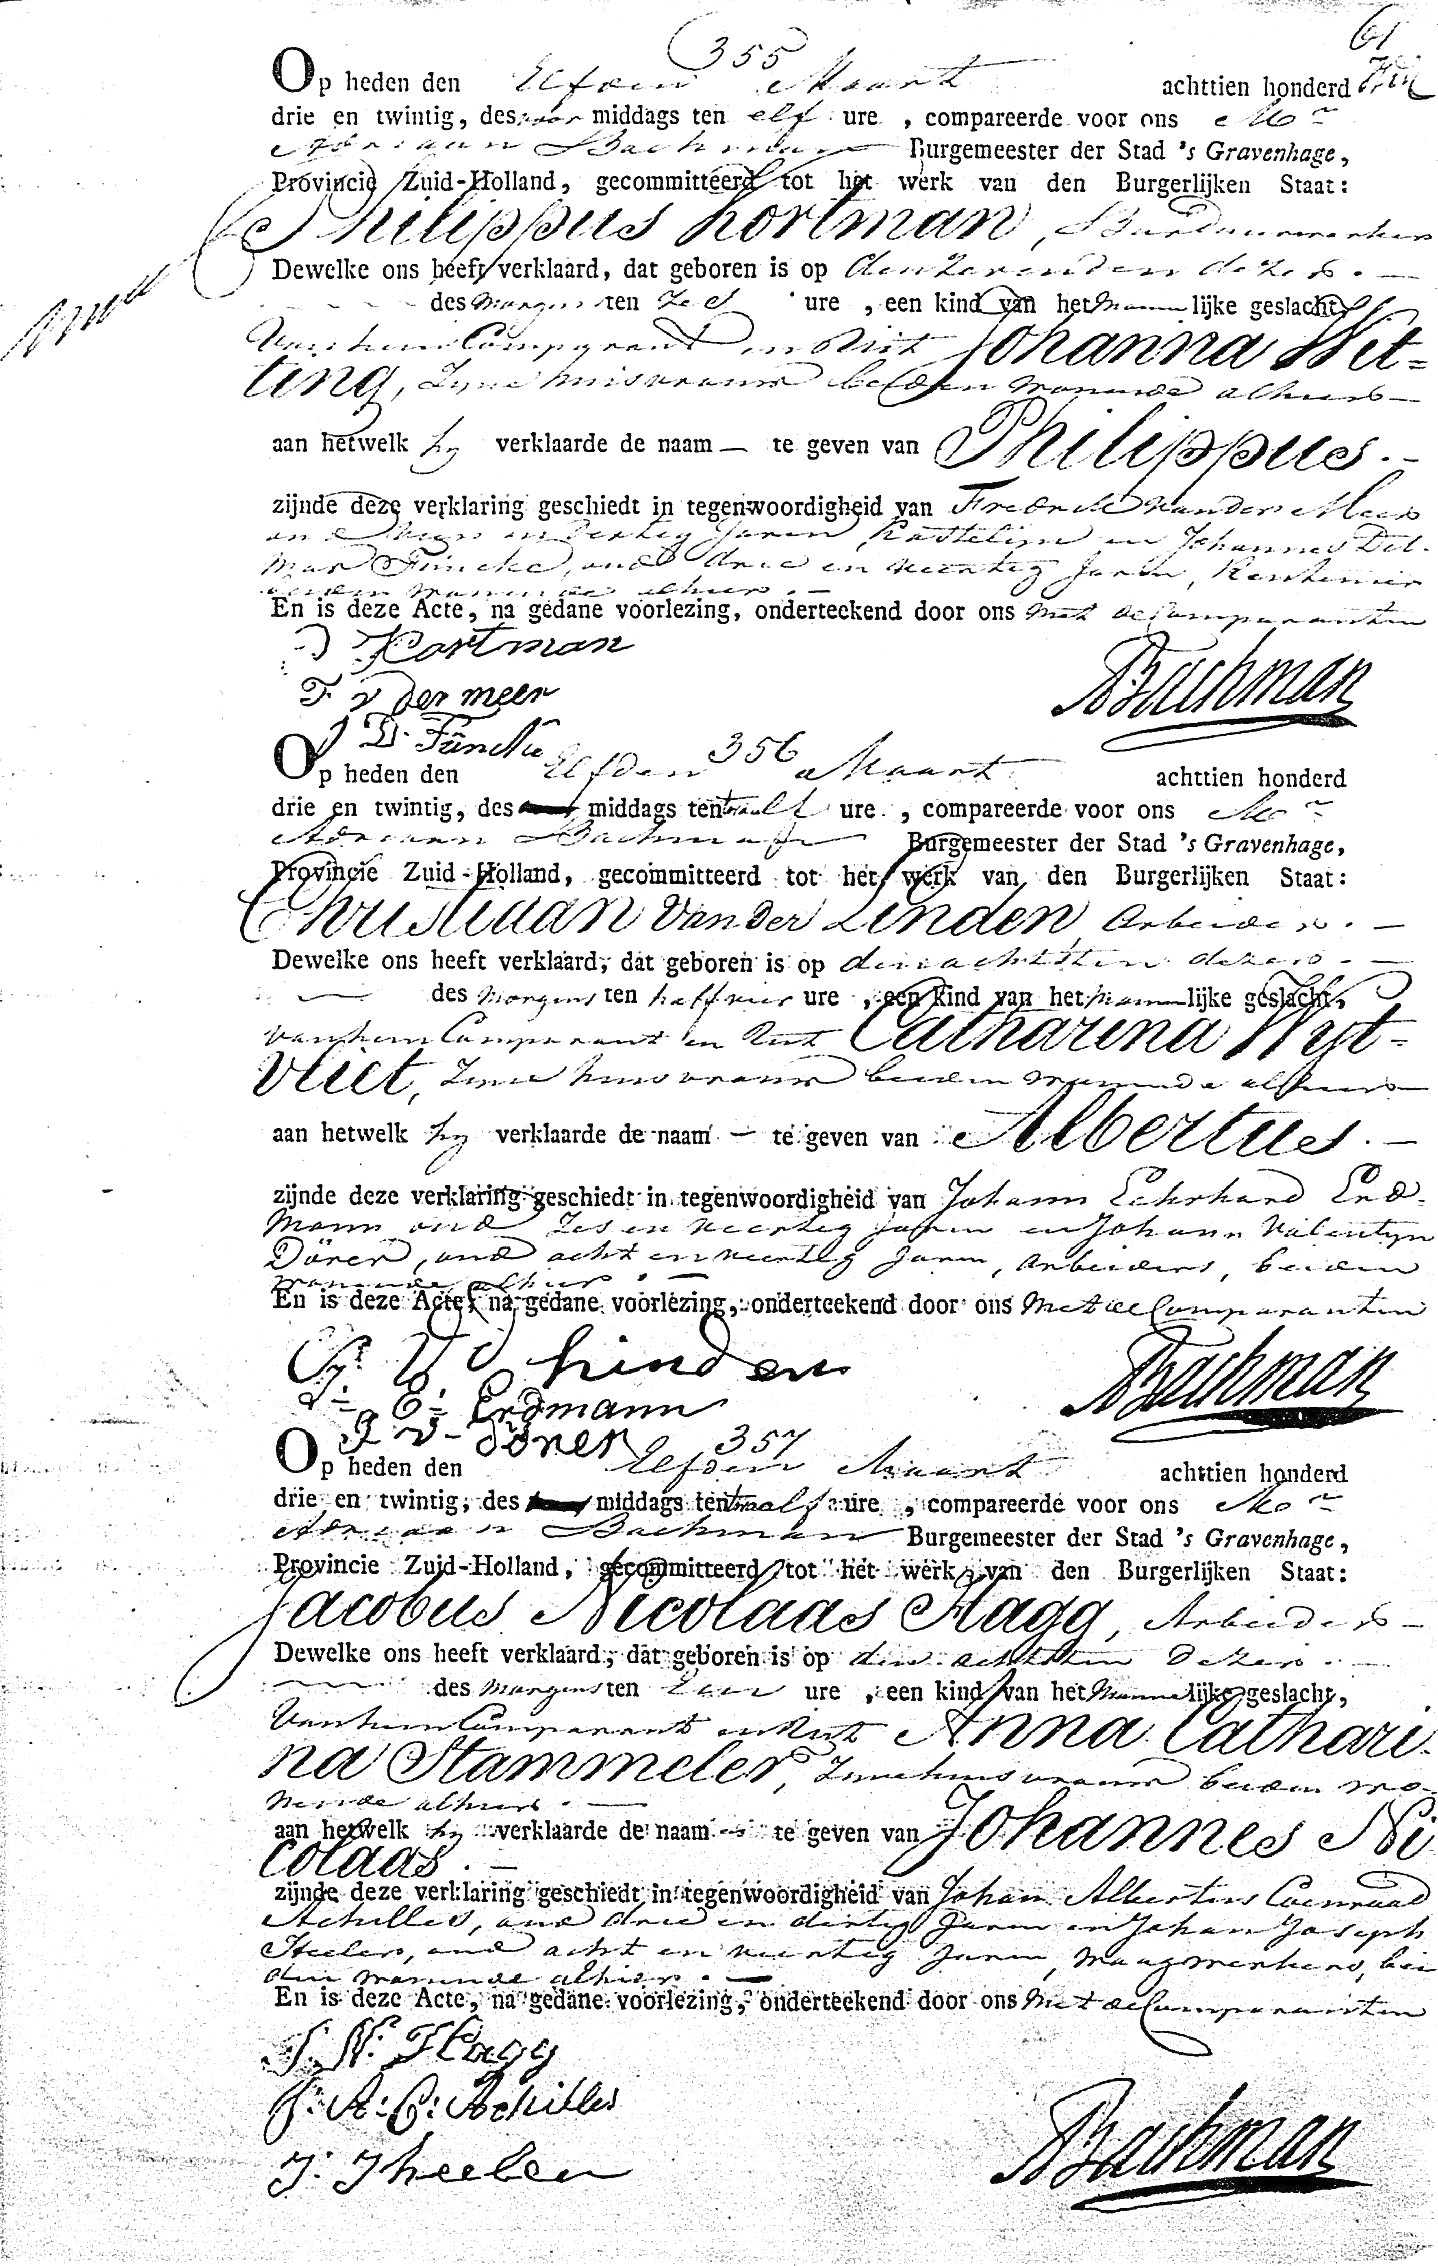 61
355
Op heden den Elfden Maart achttien honderd
drie en twintig, des voor middags ten elf ure , compareerde voor ons Mr
Adriaan Bachman Burgemeester der Stad 's Gravenhage,
Provincie Zuid-Holland, gecommitteerd tot het werk van den Burgerlijken Staat:
Philippus Kortman,
Dewelke ons heeft verklaard, dat geboren is op den zevenden dezer. —
des Morgens ten zes ure , een kind van het Mannelijke geslacht,
Van hem Comparant en Uit Johanna Wit-
ting, Zyne huisvrouw beiden wonende alhier —
aan hetwelk hy verklaarde de naam — te geven van Philippus. —
zijnde deze verklaring geschiedt in tegenwoordigheid van Fredrik van der Meer
oud en dertig Jaren, Kastelijn en Johannes Dit-
mar Füncke, oud drie en veertig Jaren, Rentenier
beiden wonende alhier. —
En is deze Acte, na gedane voorlezing, onderteekend door ons Met de Comparanten
P Kortman
F. v der meer
J D. Füncke
ABachman
356
Op heden den Elfden Maart achttien honderd
drie en twintig, des middags ten twaalf ure , compareerde voor ons Mr
Adriaan Bachman Burgemeester der Stad 's Gravenhage,
Provincie Zuid-Holland, gecommitteerd tot het werk van den Burgerlijken Staat:
Christiaan van der Linden, Arbeider. —
Dewelke ons heeft verklaard, dat geboren is op den achtsten dezer. —
des Morgens ten half vier ure , een kind van het Mannelijke geslacht,
van hem Comparant en Uit Catharina Wyt-
vliet, Zyne huisvrouw beiden wonende alhier —
aan hetwelk hy verklaarde de naam — te geven van Albertus. —
zijnde deze verklaring geschiedt in tegenwoordigheid van Johann Eehrhard Erd-
Mann oud Zes en veertig Jaren en Johann Valentyn
Dörer, oud acht en veertig Jaren, Arbeiders, beiden
wonende alhier. —
En is deze Acte, na gedane voorlezing, onderteekend door ons Met de Comparanten
C. V D Linden
J. E. Erdmann
J V Dörer
ABachman
357
Op heden den Elfden Maart achttien honderd
drie en twintig, des middags ten twaalf ure , compareerde voor ons Mr
Adriaan Bachman Burgemeester der Stad 's Gravenhage,
Provincie Zuid-Holland, gecommitteerd tot het werk van den Burgerlijken Staat:
Jacobus Nicolaas Hagg, Arbeider —
Dewelke ons heeft verklaard, dat geboren is op den achtsten Dezer. —
des Morgens ten Een ure , een kind van het Mannelijke geslacht,
Van hem Comparant en Uit Anna Cathari-
na Stammeler, Zyne huisvrouw beiden wo-
nende alhier. —
aan hetwelk hy verklaarde de naam — te geven van Johannes Ni
colaas. —
zijnde deze verklaring geschiedt in tegenwoordigheid van Johan Albertus Coenraad
Achilles, oud drie en dertig Jaren en Johan Joseph
Heelen, oud acht en veertig Jaren, Maagwerkers, bei
den wonende alhier. —
En is deze Acte, na gedane voorlezing, onderteekend door ons Met de Comparanten
J. N. Hagg
J. A. C. Achilles
J. J heelen
ABachman